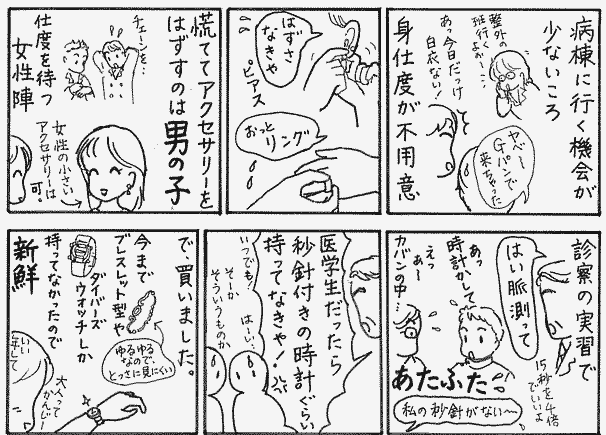 病棟に行く機会が
少ないころ
整外の
班行くよー!…
あっ今日だっけ
白衣ない!
身仕度が不用意
ヤベ〜
Gパンで
来ちゃった
はずさ
なきゃ
ピアス
おっと
リング
慌ててアクセサリーを
はずすのは男の子
チェーンを…
仕度を待つ
女性陣
女性の小さい
アクセサリーは
可。
診察の実習で
はい脈測って
15秒を4倍
でいいよ
あっ
時計かして
えっ
あ〜
カバンの中…
あたふた
私の秒針がない〜
医学生だったら
秒針付きの時計ぐらい
持ってなきゃ!
いつでも!
はい…
そーか
そういうものか
で、買いました。
今まで
ブレスレット型や
ダイバーズ
ウォッチしか
持ってなかったので
新鮮
ゆるゆる
なので、
とっさに見にくい
大人って
かんじ〜
いい
年して